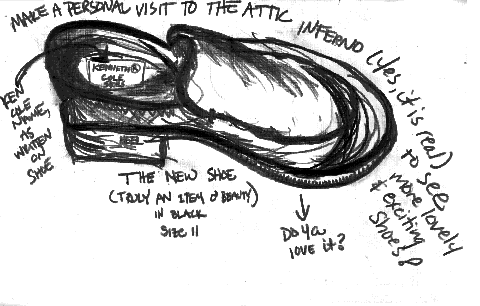 MAKE A PERSONAL VISIT TO THE ATTIC INFERNO (Yes, it is real)
to see
more lovely
& exciting
shoes!
KENNETH
COLE
KEN
COLE
NAME,
AS
WRITTEN
ON
SHOE
HEEL
THE NEW SHOE
(TRULY AN ITEM O' BEAUTY)
IN BLACK
SIZE 11
DO YA
LOVE IT?